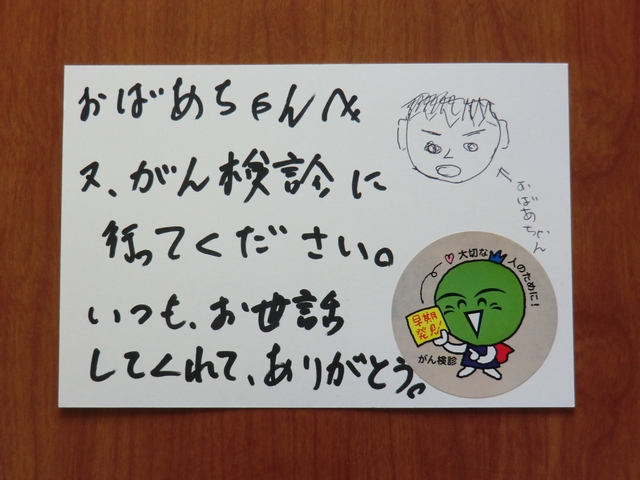 おばあちゃんへ
又、がん検診に
行ってください。
いつも、お世話
してくれて、ありがとう。
おばあちゃん
大切な人のために!
早期
発見!
がん検診